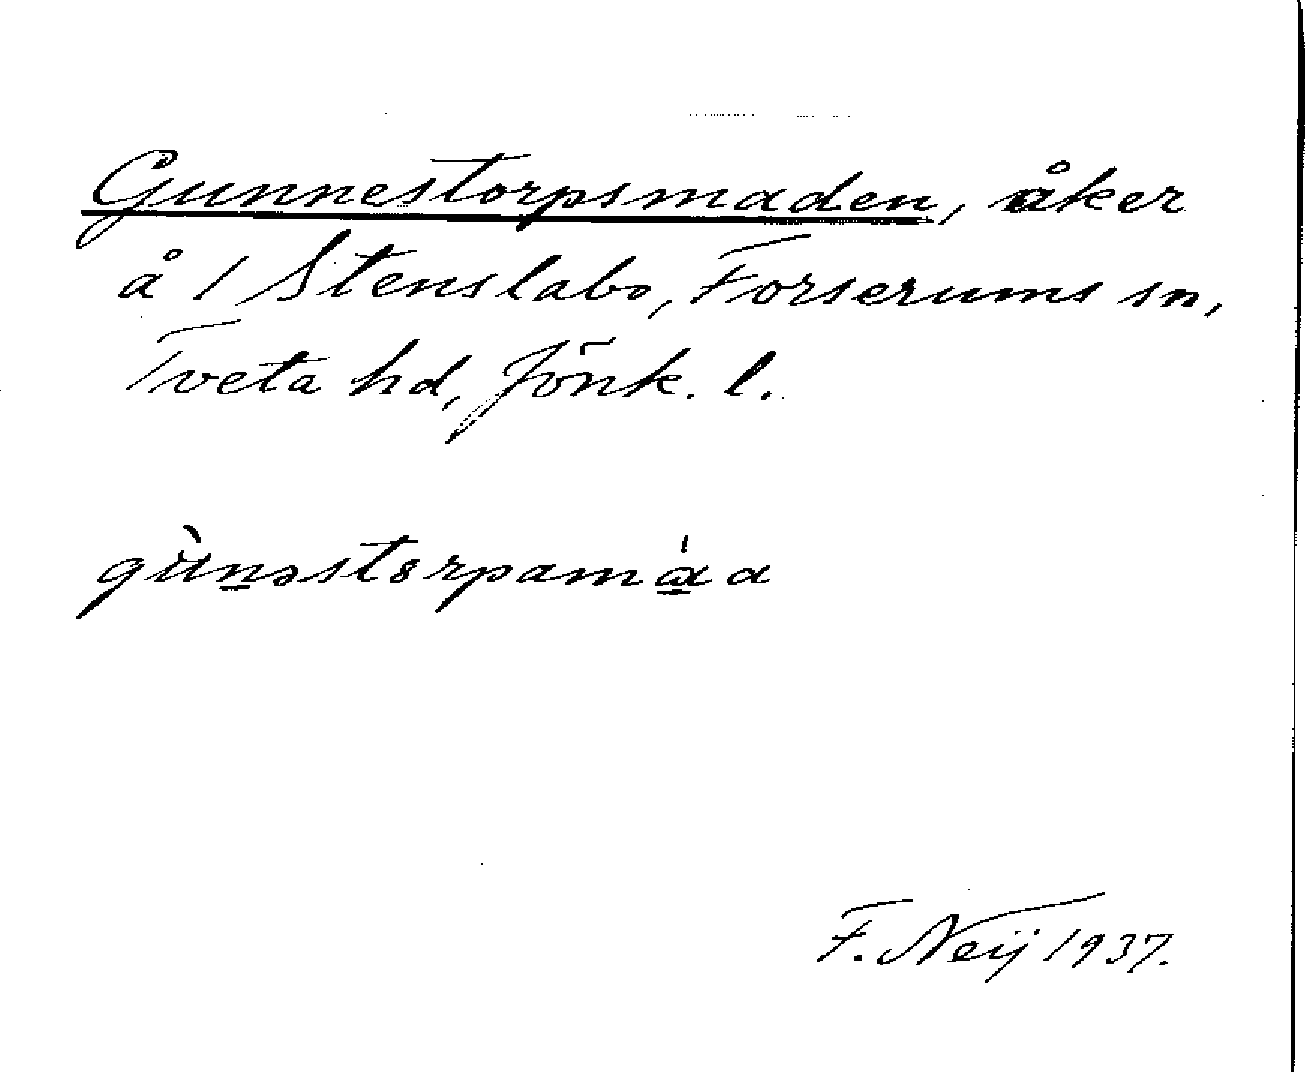 Gunnestorpsmaden, åker
å 1 Stenslabo, Forserums sn,
Tveta hd, Jönk. l.
gùnəstɵrpamá̱a
F. Neij 1937.